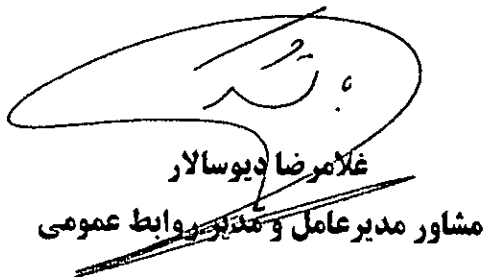 با تشکر
غلامرضا دیوسالار
مشاور مدیرعامل و مدیر روابط عمومی